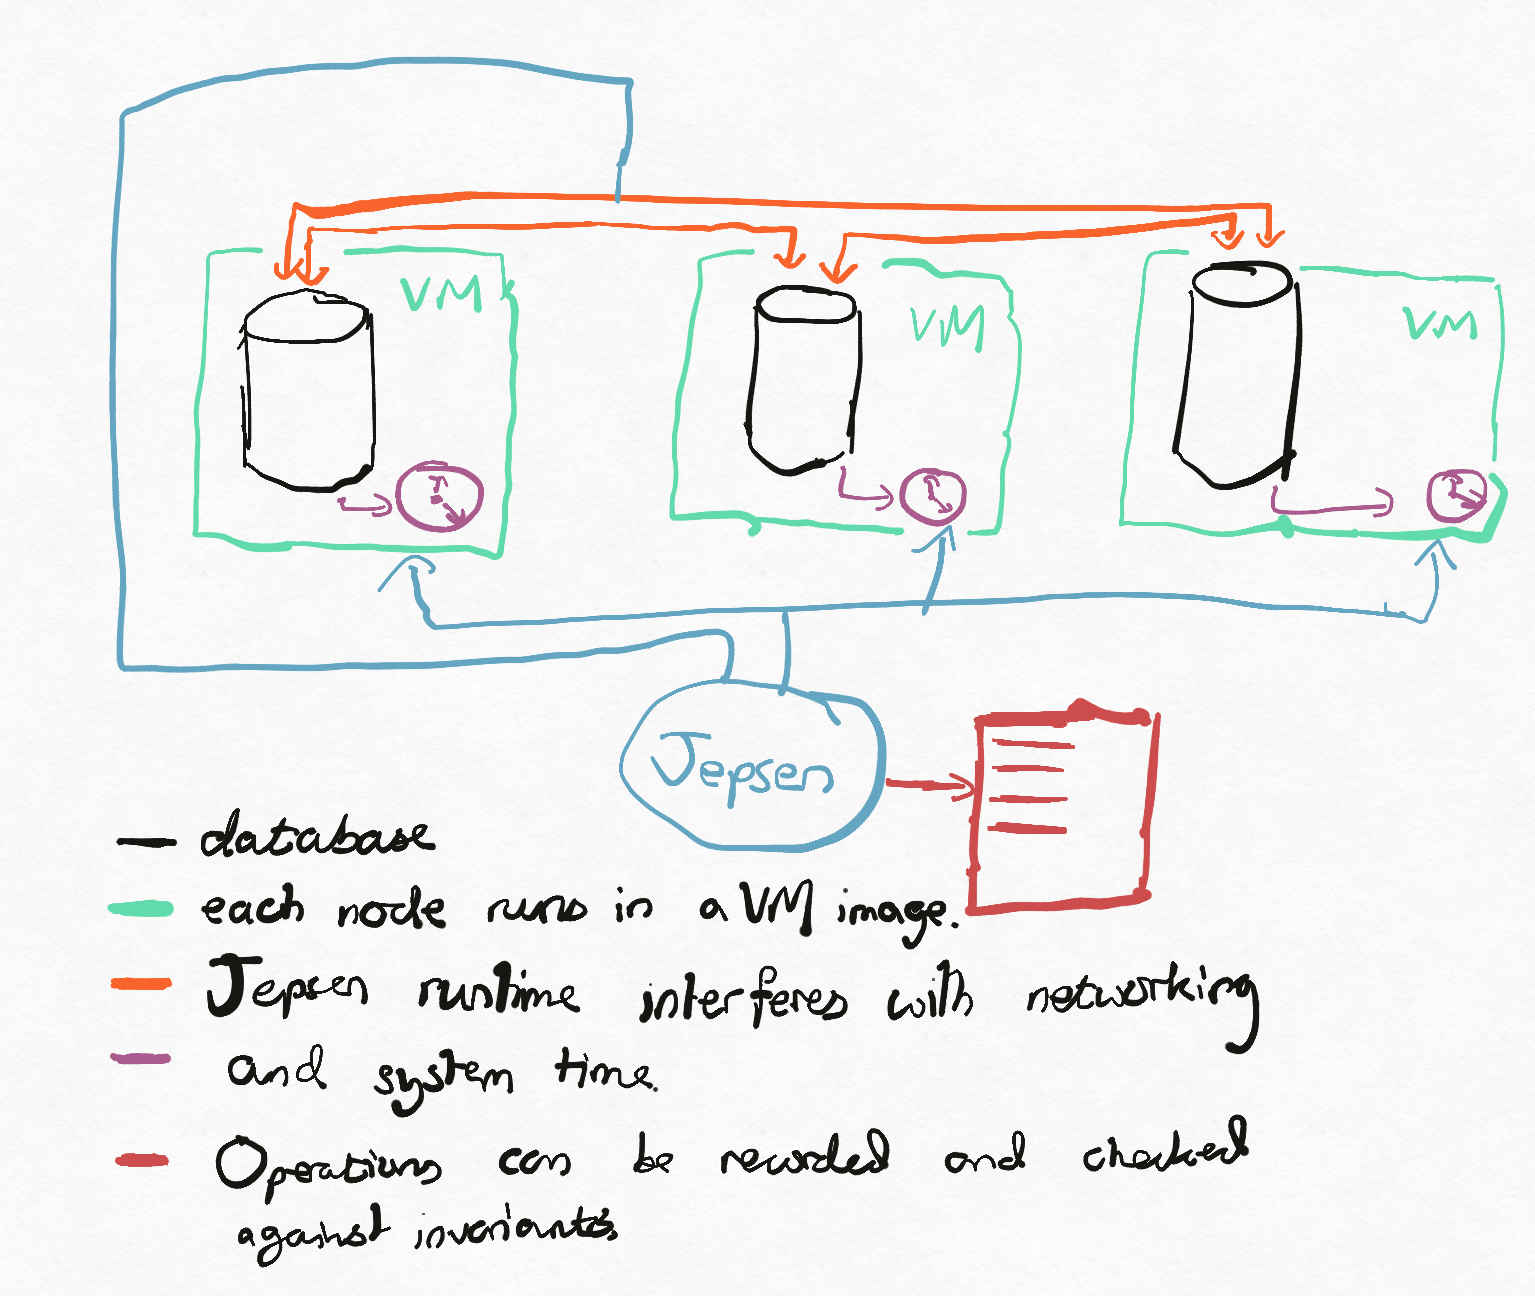 VM
VM
VM
Jepsen
database
each node runs in a VM image.
Jepsen runtime interferes with networking
and system time.
Operations can be recorded and checked
against invariants